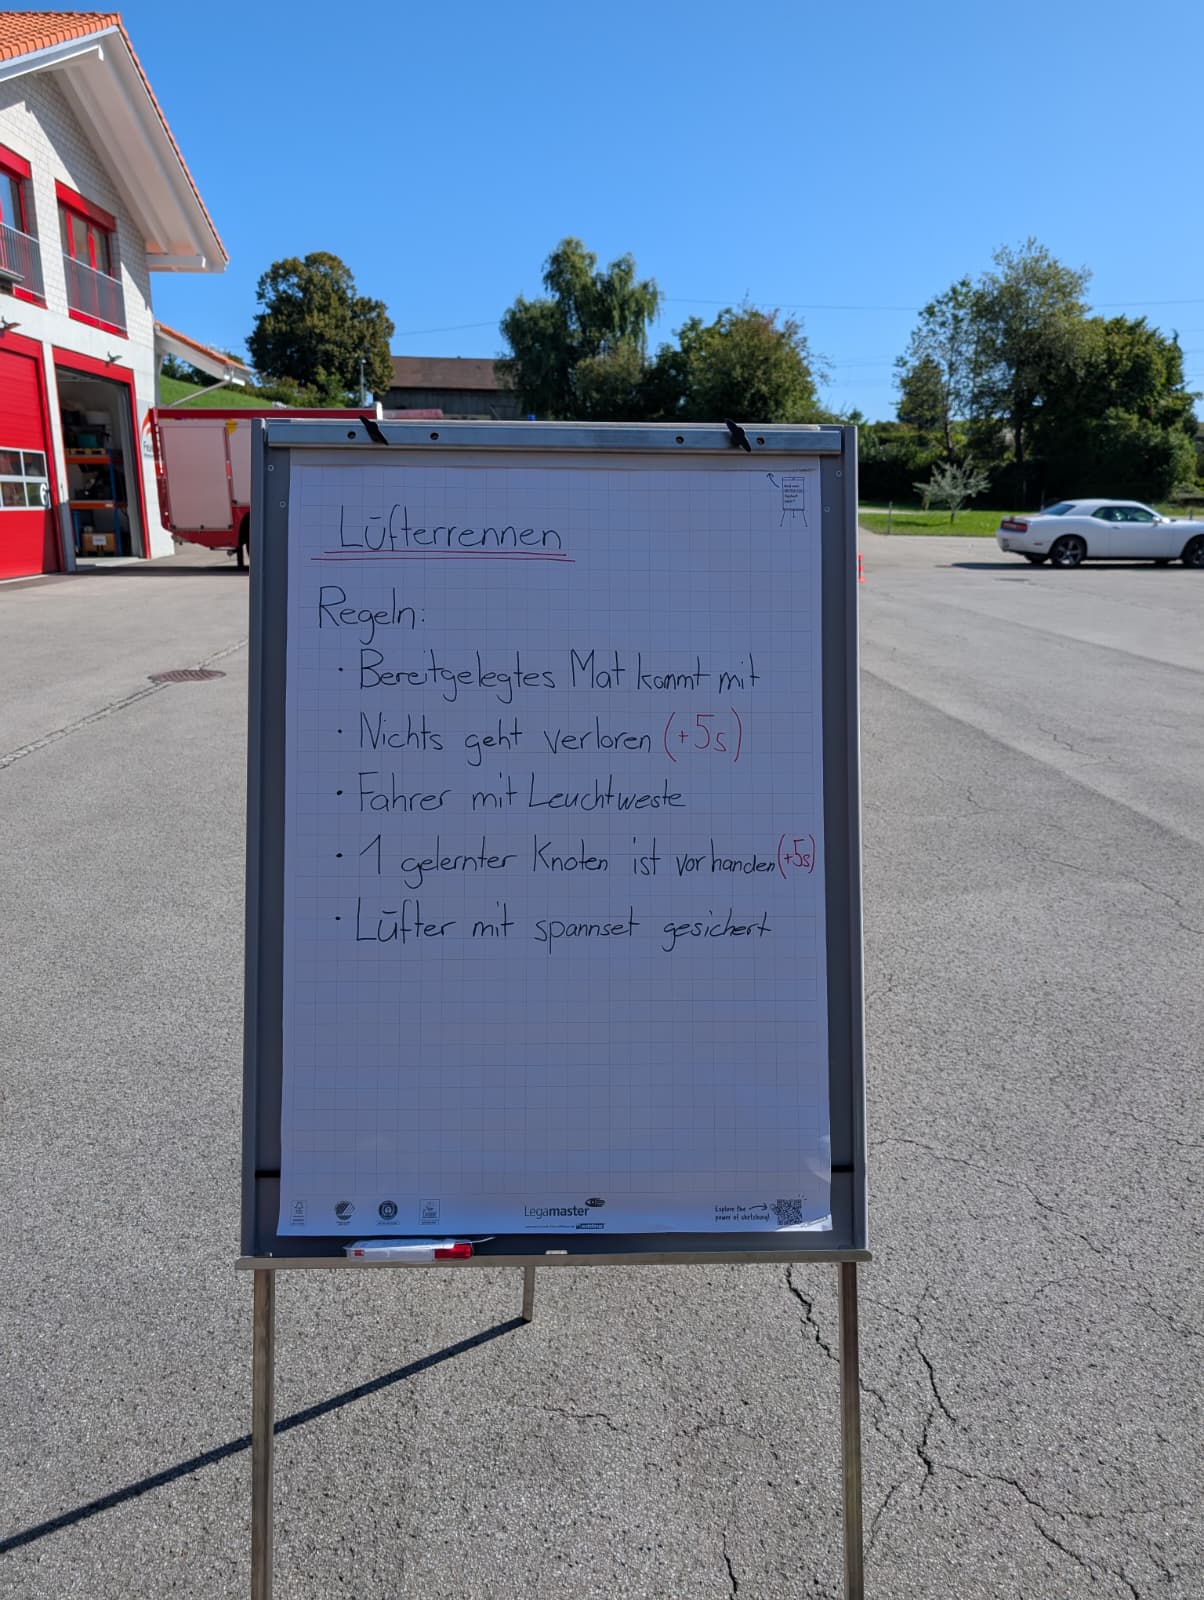 Lüfterrennen
Regeln:
• Bereitgelegtes Mat kommt mit
• Nichts geht verloren (+5s)
• Fahrer mit Leuchtweste
• 1 gelernter Knoten ist vorhanden (+5s)
• Lüfter mit spannset gesichert
Legamaster
Explore the
power of sketching!